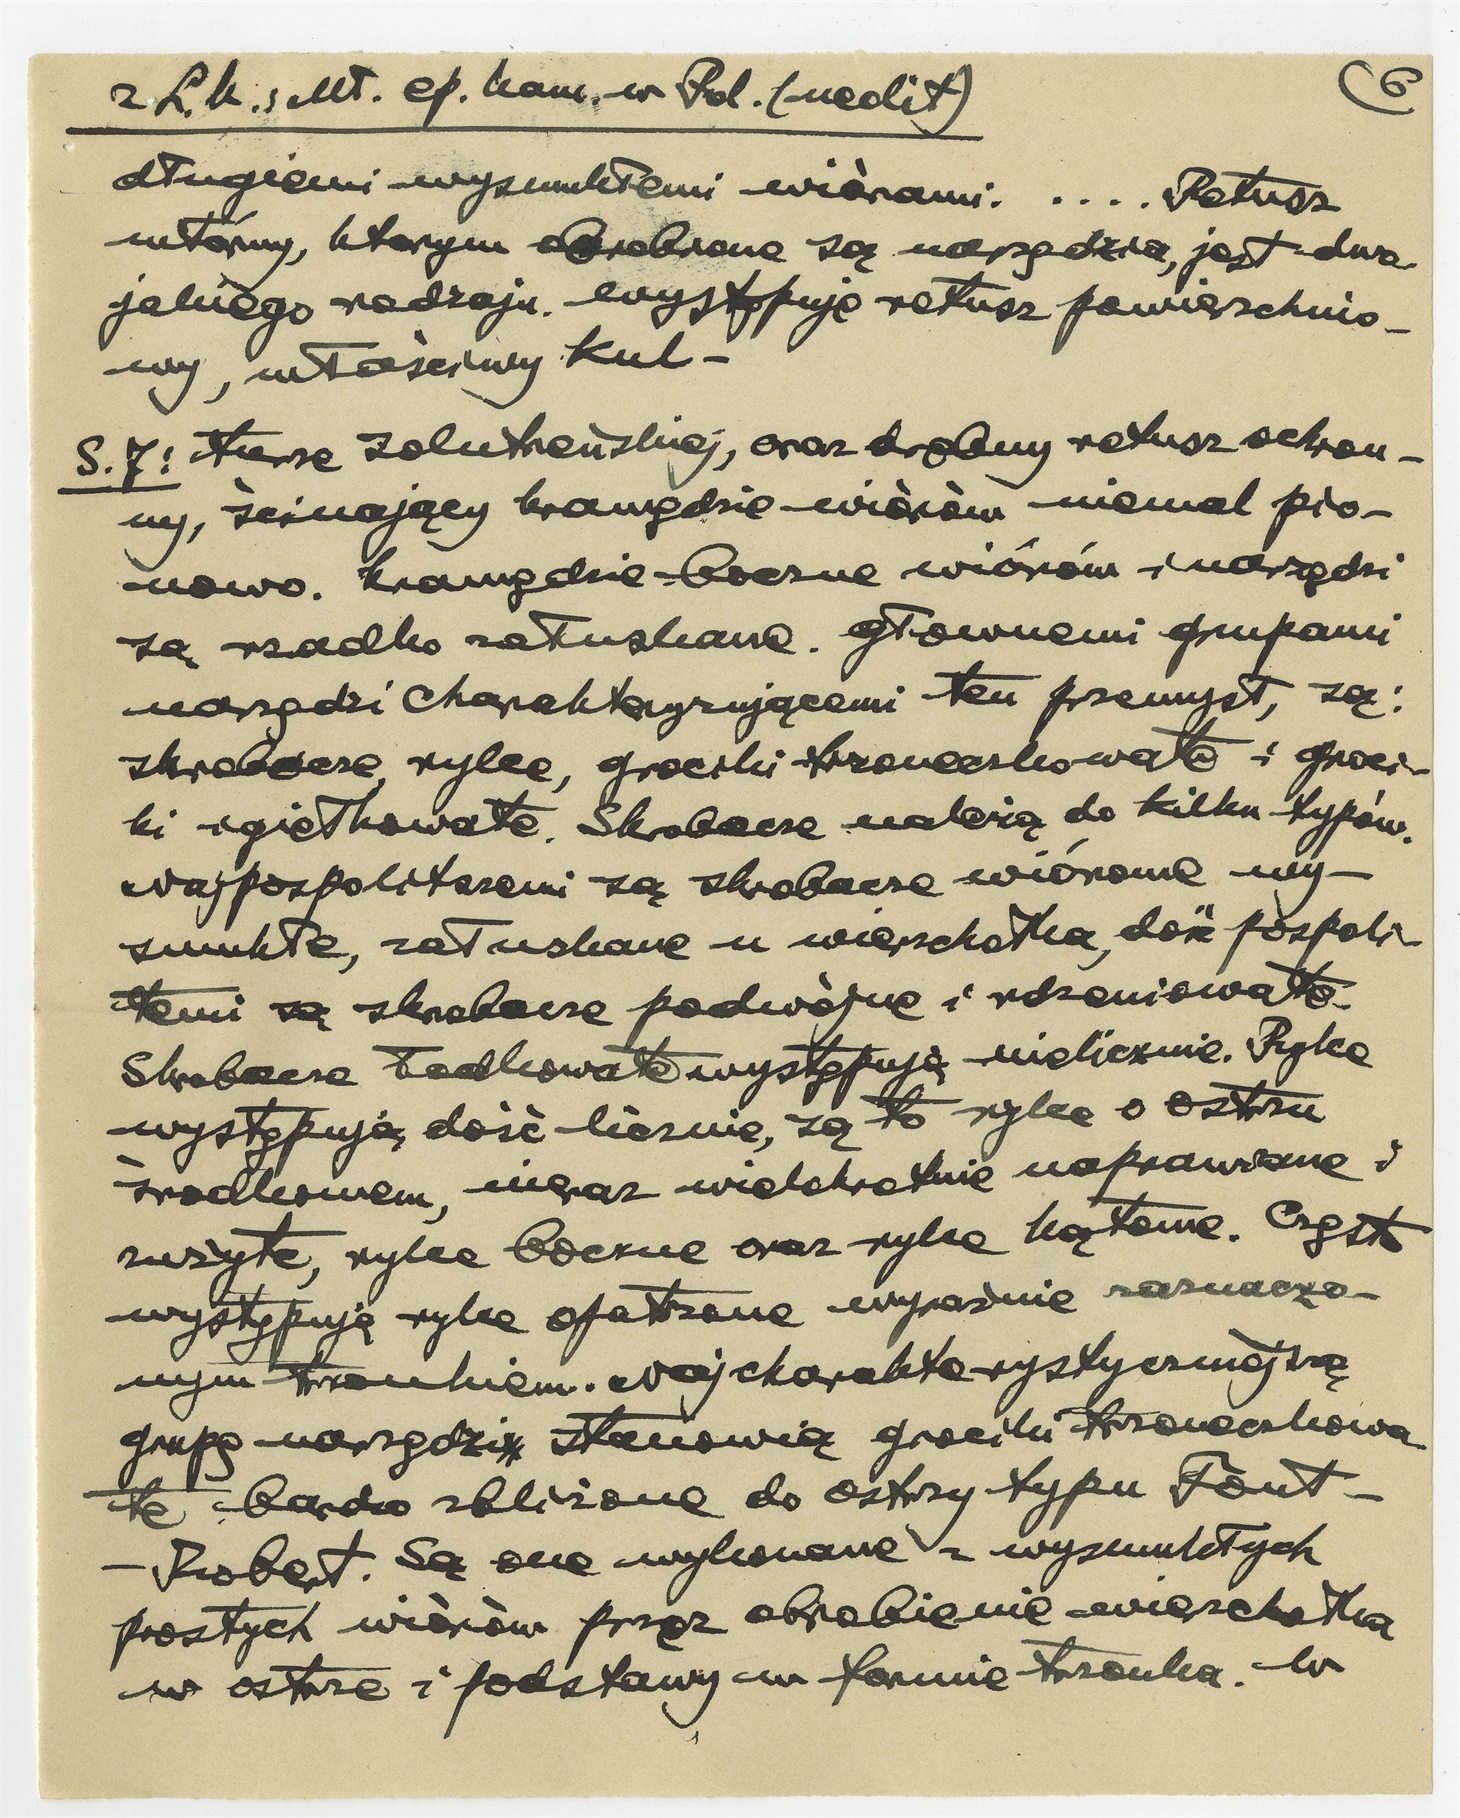 z L.K.: Mł. ep. kam. w Pol. (inedit) 6
długiemi wysmukłemi wiórami. .... Retusz
wtórny, ktorym obrobione są narzędzia, jest dwo-
jakiego rodzaju. Występuję retusz powierzchnio-
wy, właściwy kul-
S.7: turze solutreńskiej, oraz drobny retusz ochron-
ny, ścinający krawędzie wiórów niemal pio-
nowo. Krawędzie boczne wiórów i narzędzi
są rzadko załuskane. Głownemi grupami
narzędzi charakteryzującemi ten przemysł, są:
skrobacze, rylce, grociki trzoneczkowate i groci-
ki igiełkowate. Skrobacze należą do kilku typów.
Najpospolitszemi są skrobacze wiórowe wy-
smukłe, załuskane u wierzchołka, dość pospoli-
temi są skrobacze podwójne i rdzeniowate.
Skrobacze łódkowate występują nielicznie. Rylce
występują dość licznie, są to rylce o ostrzu
środkowem, nieraz wielokrotnie naprawiane i
zużyte, rylce boczne oraz rylce kątowe. Często
występują rylce opatrzone wyraźnie zaznaczo-
nym trzonkiem. Najcharakterystyczniejszą
grupę narzędzi stanowią grociki trzoneczkowa
te bardzo zbliżone do ostrzy typu Font-
-Robert. Są one wykonane z wysmukłych
prostych wiórów przez obrobienie wierzchołka
w ostrze i podstawy w formie trzonka. W